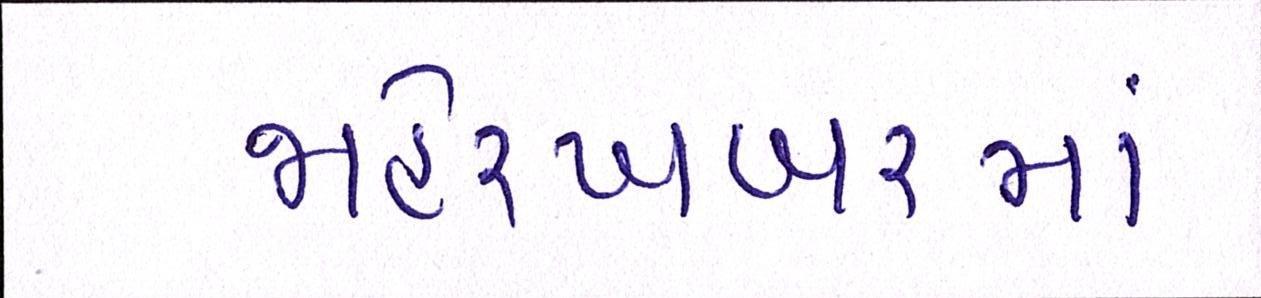 જાહેરખબરમાં